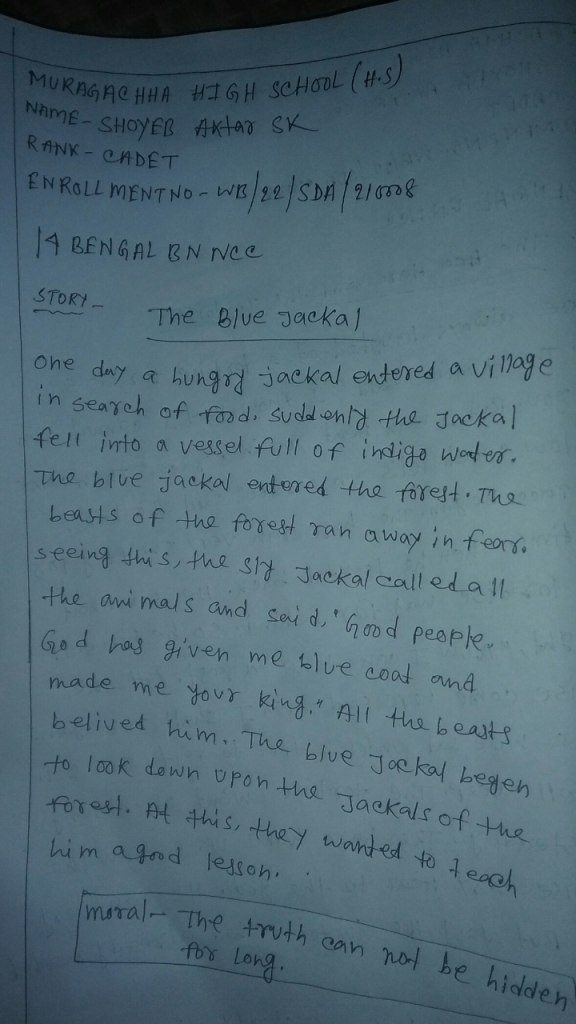 MURAGACHHA HIGH SCHOOL (H.S)
NAME - SHOYEB Aktar SK
RANK - CADET
ENROLLMENT NO - WB/22/SDA/210008
14 BENGAL BN NCC
STORY -
The Blue Jackal
One day a hungry jackal entered a village
in search of food. suddenly the Jackal
fell into a vessel full of indigo water.
The blue jackal entered the forest. The
beasts of the forest ran away in fear.
seeing this, the sly Jackal called all
the animals and said, "Good people.
God has given me blue coat and
made me your king." All the beasts
belived him. The blue Jackal begen
to look down upon the Jackals of the
forest. At this, they wanted to teach
him a good lesson.
moral - The truth can not be hidden
for long.